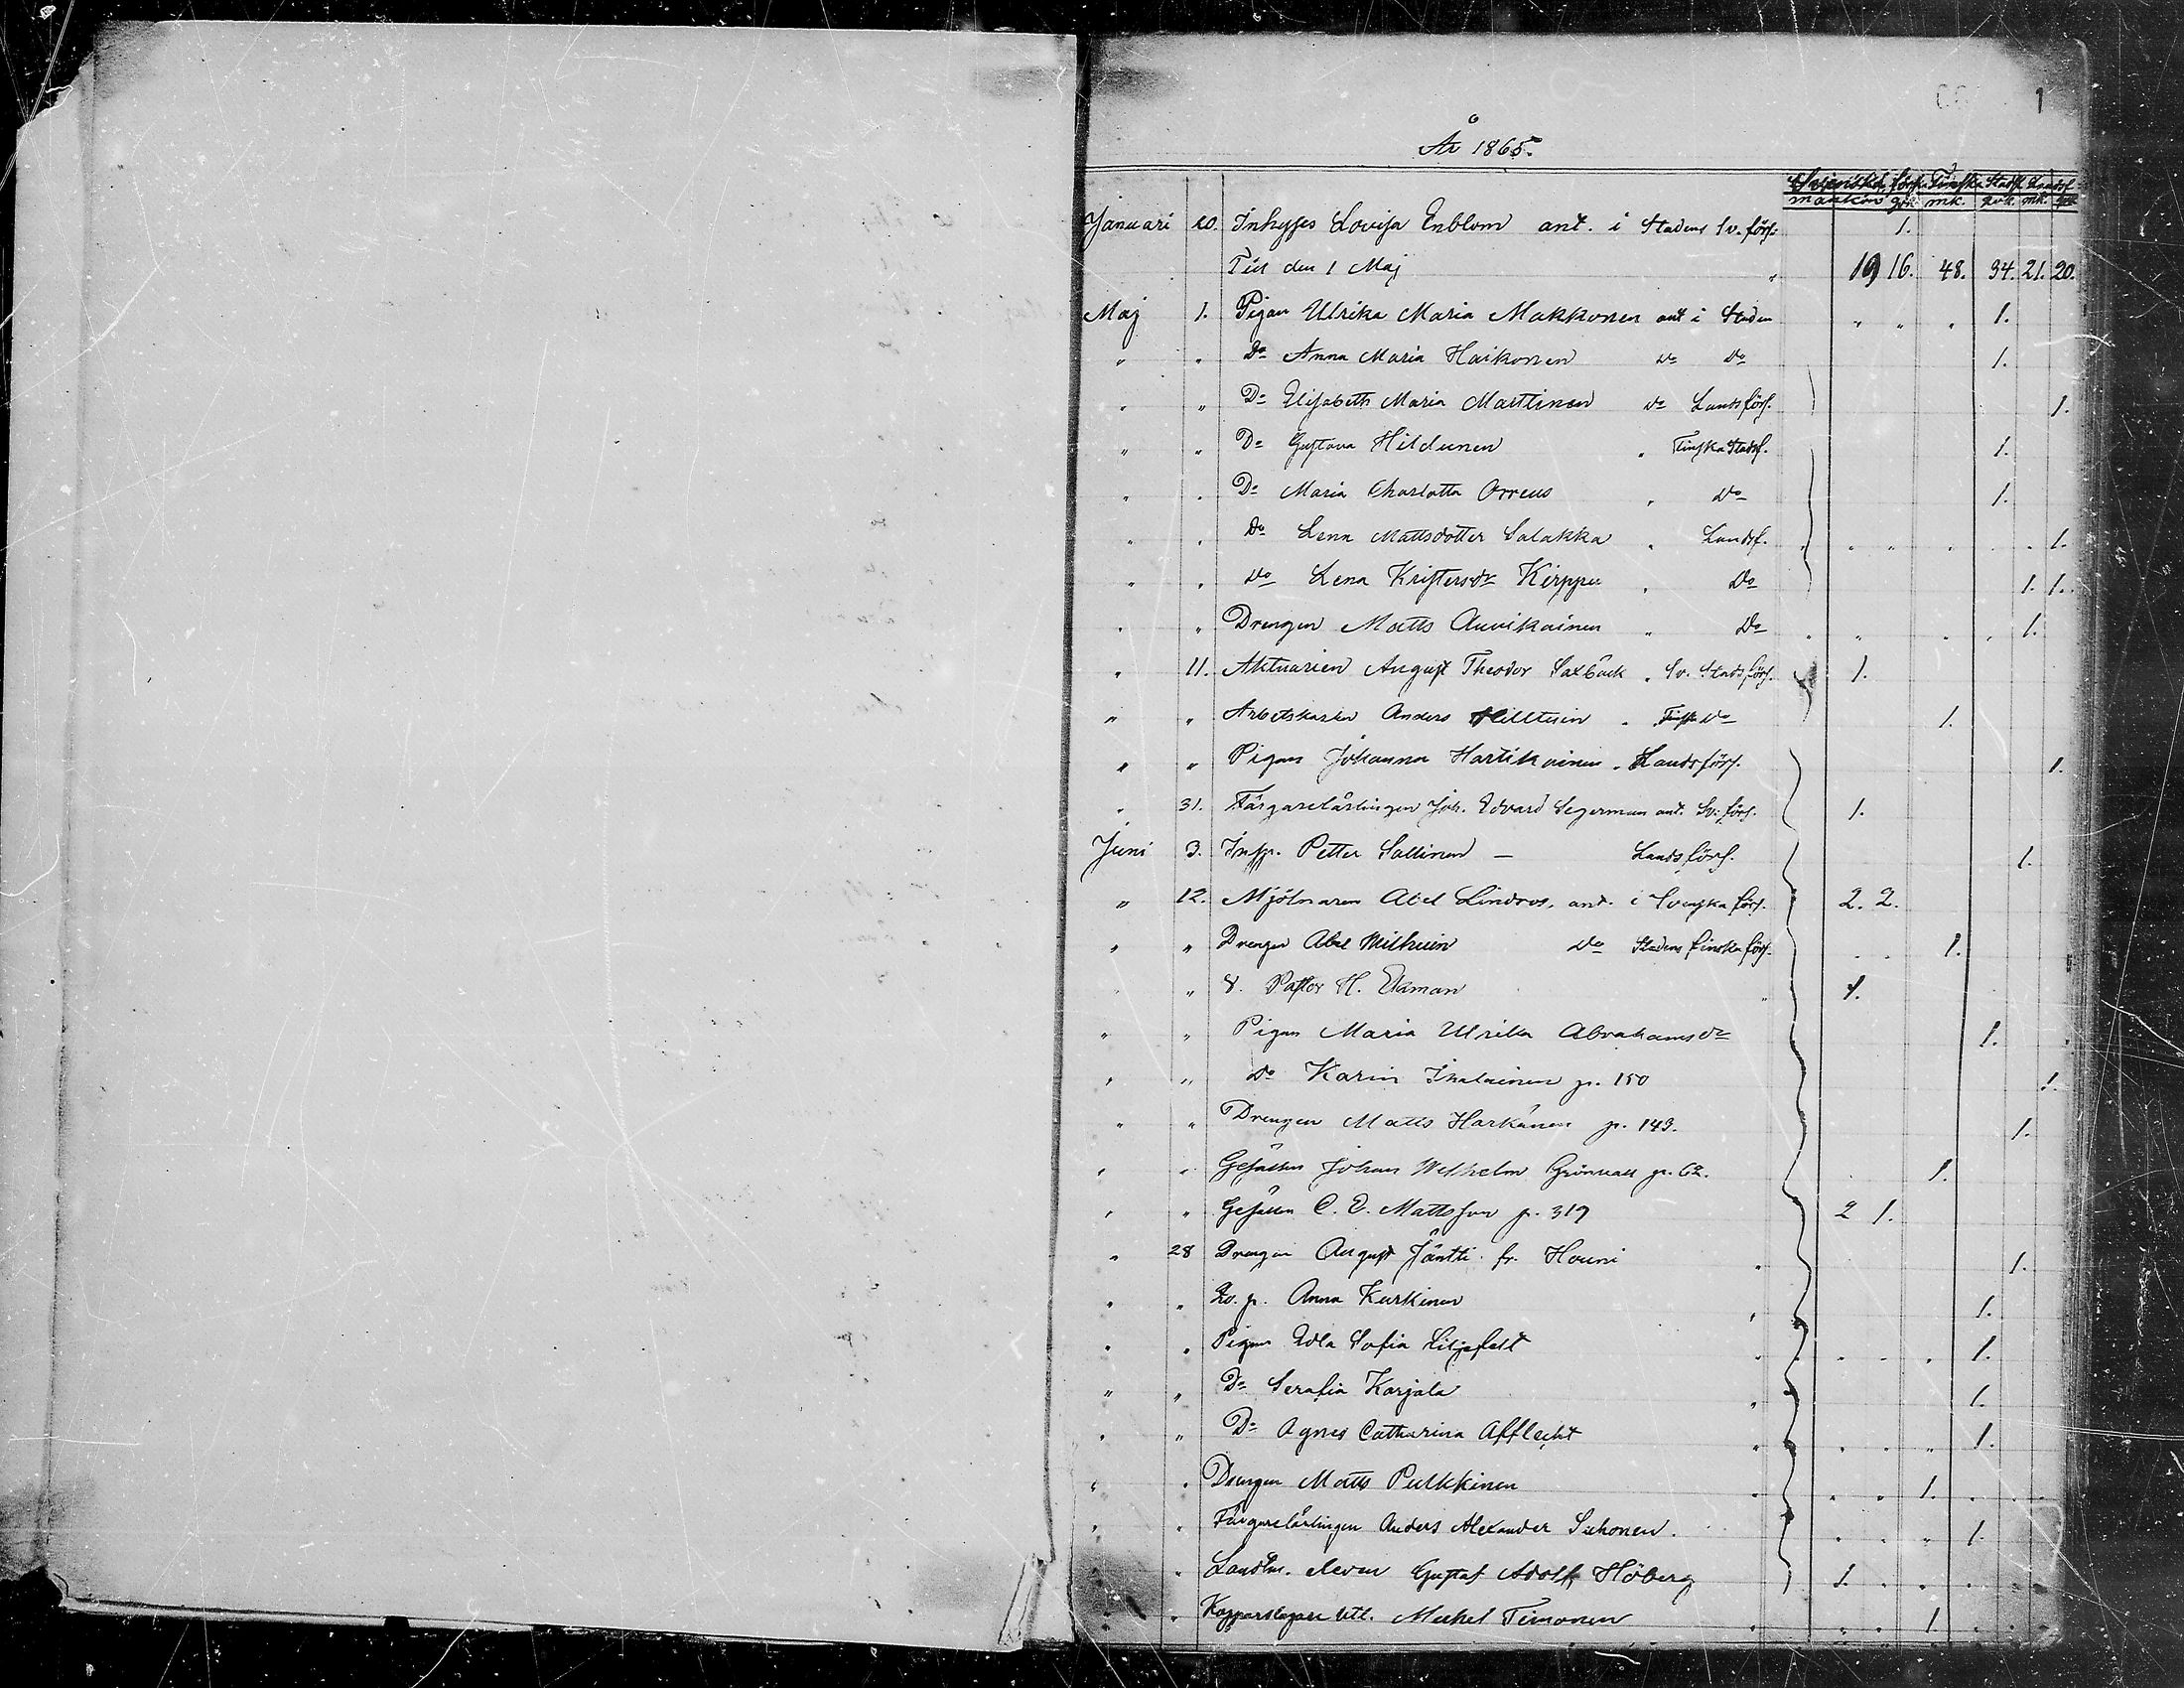 1
År 1865.
Svenska förs. Finska Stadsf. Landsf.
mankön qvk. mk. qvk. mk. qvk.
Januari 20. Inhyses Lovisa Enblom ant. i Stadens Sv. förs. 1.
Till den 1 Maj " 19 16. 48. 34. 21. 20.
Maj 1. Pigan Ulrika Maria Makkonen ant i Staden " " " 1.
" " Do Anna Maria Haikonen do do 1.
" " Do Elisabeth Maria Marttinen do Landsförs. 1.
" " Do Gustava Hildunen " Finska Stadsf. 1.
" " Do Maria Charlotta Orreus " do 1.
" " Do Lena Mattsdotter Salakka " Landsf. 1.
" " do Lena Kristersdr Kirppu " Do 1. 1.
" " Drengen Matts Auvikainen " Do 1.
" 11. Aktuarien August Theodor Saxbäck " Sv. Stadsförs. 1.
" " Arbetskarlen Anders " Finska do 1.
" " Pigan Johanna Hartikainen " Landsförs. 1.
" 31. Färgarelärlingen Joh. Edvard Segerman ant. Sv. förs. 1.
Juni 3. Petter Sallinen — Landsförs. 1.
" 12. Mjölnaren Abel Lindros, ant. i Svenska förs. 2. 2.
" " Drengen Abel do Stadens finska förs. 1.
" " v. Pastor H. Ekman " 1.
" " Pigan Maria Ulrika Abrahamsdr 1.
" " do Karin Ikalainen p. 150 1.
" " Drengen Matts Harkänen p. 143. 1.
" " Gesällen Johan Wilhelm Grönvall p. 62. 1.
" " Gesällen C. E. Mattsson p. 317 2 1.
" 28 Drengen August Jäntti fr. Houni " 1.
" " p. Anna Kurkinen " 1.
" " Pigan Edla Sofia Liljefelt " 1.
" " Do Serafia Karjala " 1.
" " Do Agnes Catharina Afflecht " 1.
" " Drengen Matts Pulkkinen " 1.
" " Färgarelärlingen Anders Alexander Suhonen. 1.
" " Landtm. eleven Gustaf Adolf Höberg 1.
" " Kopparslagare Mickel Timonen " 1.